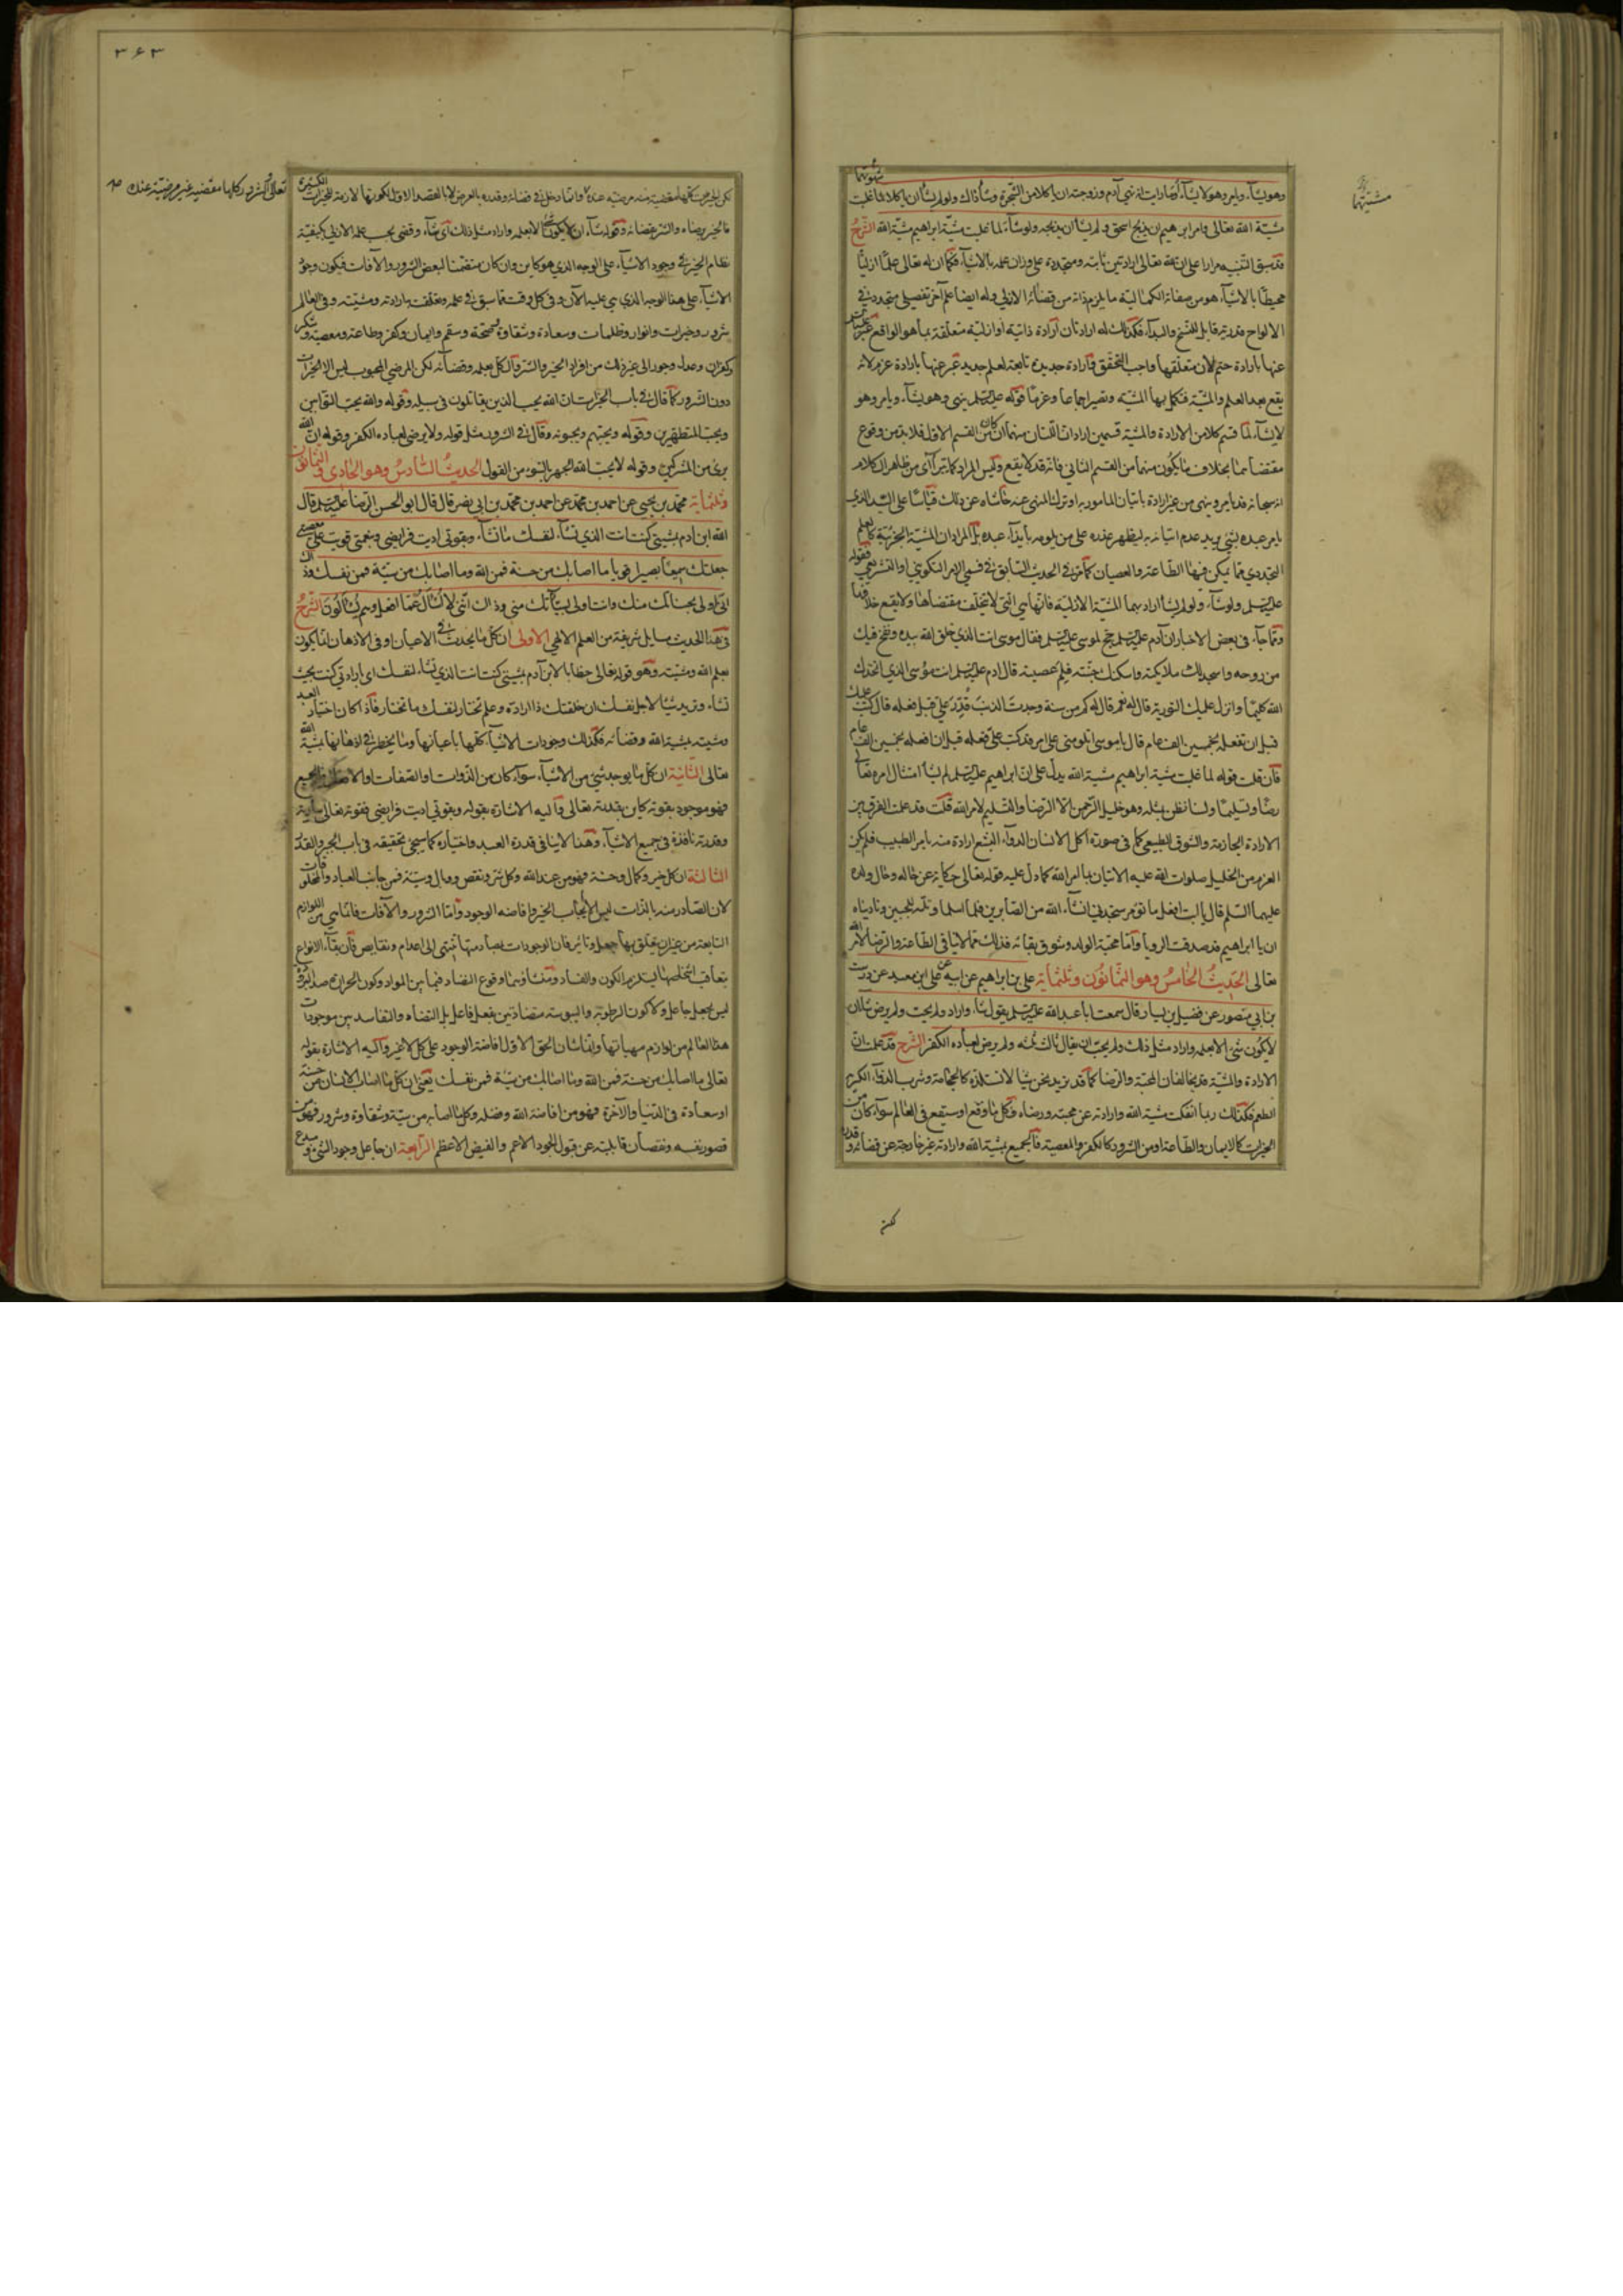 وهو يشآء ويامر وهو لا يشآء اما رايت انه نهى آدم وزوجته ان ياكلا من الشجرة وشآء ذلك ولو لم يشأ ان ياكلا لما غلبت
شهوتهما
مشيتهما
مشية الله تعالى وامر ابرهيم ان يذبح اسحق ولم يشأ ان يذبحه ولو شآء لما غلبت مشية ابراهيم مشية الله الشرح
قد سبق التنبيه مرارا على ان لله تعالى ارادتين ثابتة ومتجددة على وزان علمه بالاشيآء فكما ان له تعالى علما ازليا
محيطا بالاشيآء هو من صفاته الكمالية ما يلزم ذاته من قضائه الازلي وله ايضا علم آخر تفصيلي متجدد في
الالواح قدرية قابل للنسخ والبدآء فكذلك له ارادتان ارادة ذاتية ازلية متعلقة بما هو الواقع عبر عليه السلم
عنها بارادة حتم لان متعلقها واجب التحقق وارادة جديدة تابعة لعلم جديد عبر عنها بارادة عزم لانه
يقع بعد العلم والمشية فتكمل بها المشية وتصير اجماعا وعزما قوله عليه السلم ينهى وهو يشآء ويامر وهو
لا يشآء لما قسم كلا من الارادة والمشية قسمين ارادان اللتان منهما ان كان من القسم الاول فلا بد من وقوع
مقتضاهما بخلاف ما يكون منهما من القسم الثاني فانه قد لا يقع وليس المراد كما تترآى من ظاهر الكلام
انه سبحانه قد يامر وينهى من غير ارادة باتيان المامور به او ترك المنهي عنه حاشاه عن ذلك قياسا على السيد الذي
يامر عبده بشئ يريد عدم اتيانه به ليظهر عذره على من يلومه بايذآء عبده بل المراد ان المشية الجزئية كالعلم
التجددي مما يمكن فيها الطاعة والعصيان كما مر في الحديث السابق في قسمي الامر التكويني او التشريعي فقوله
عليه السلم ولو شآء ولو لم يشأ اراد بهما المشية الازلية فانها هي التي لا تتخلف مقتضاها ولا يقع خلافها
ومما جآء في بعض الاخبار ان آدم عليه السلم حج لموسى عليه السلم فقال موسى انت الذي خلق الله بيده ونفخ فيك
من روحه واسجد لك ملائكته واسكنك جنته فلم عصيته قال ادم عليه السلم انت موسى الذي اتخذك
الله كليما وانزل عليك التورية قال نعم قال له كم من سنة وجدت الذنب قدر علي قبل فعله قال كتب عليك
قبل ان تفعله بخمسين الف عام قال يا موسى اتلومني على امر قد كتب علي فعله قبل ان افعله بخمسين الف عام
فان قلت قوله لما غلبت مشية ابراهيم مشية الله يدل على ان ابراهيم عليه السلم لم يشأ امتثال امره تعالى
رضا وتسليما ولسنا نظن بمثله وهو خليل الرحمن الا الرضا والتسليم لامر الله قلت قد علمت الفرق بين
الارادة الجازمة والشوق الطبيعي كما في صورة اكل الانسان الدوآء البشع ارادة منه بامر الطبيب فلم يكن
العزم من الخليل صلوات الله عليه الا تيان بامر الله كما دل عليه قوله تعالى حكاية عن حاله وحال ولده
عليهما السلم قال يا ابت افعل ما تؤمر ستجدني ان شآء الله من الصابرين فلما اسلما وتله للجبين وناديناه
ان يا ابراهيم قد صدقت الرويا واما محبة الولد وشوق بقائه فذلك مما لا ينافي الطاعة والرضا لامر الله
تعالى الحديث الخامس وهو الثمانون وثلثمآية علي بن ابراهيم عن ابيه عن علي ابن معبد عن درست
بن ابي منصور عن فضيل بن يسار قال سمعت ابا عبد الله عليه السلم يقول شآء واراد ولم يحب ولم يرض شآء ان
لا يكون شئ الا بعلمه واراد مثل ذلك ولم يحب ان يقال ثالث ثلثة ولم يرض لعباده الكفر الشرح قد علمت ان
الارادة والمشية قد يخالفان المحبة والرضا كما قد نريد نحن شيئا لا نستلذه كالحجامة وشرب الدوآء الكريه
الطعم فكذلك ربما انفكت مشية الله وارادته عن محبته ورضاه فكل ما وقع او سيقع في العالم سوآء كان من
الخيرات كالايمان والطاعة او من الشرور كالكفر والمعصية فالجميع بمشية الله وارادته غير خارجة عن قضائه وقدره
لكن
٣٦٣
لكن الخيرات كلها مقضية مرضية عنده وانما دخل في قضائه وقدره بالعرض لا بالقصد الاول لكونها لازمة للخيرات الكثيرة
تعالى والشرور كلها مقضية غير مرضية عنده صح
فالخير برضاه والشر بقضائه وقوله شآء ان لا يكون شئ الا بعلمه واراد مثل ذلك اى شآء وقضى بحسب علمه الازلي بكيفية
نظام الخير في وجود الاشيآء على الوجه الذي هو كاين وان كان متضمنا لبعض الشرور والآفات فيكون وجود
الاشيآء على هذا الوجه الذي هي عليه الآن وفي كل وقت مما سبق في علمه وتعلقت به ارادته ومشيته وفي العالم
شرور وخيرات وانوار وظلمات وسعادة وشقاوة وصحة وسقم وايمان وكفر وطاعة ومعصية وشكر
وكفران وعدل وجور الى غير ذلك من افراد الخير والشر والكل بعلمه وقضآئه لكن المرضي المحبوب ليس الا الخيرات
دون الشرور كما قال في باب الخيرات ان الله يحب الذين يقاتلون في سبيله وقوله والله يحب التوابين
ويحب المتطهرين وقوله ويحبهم ويحبونه وقال في الشرور مثل قوله ولا يرضى لعباده الكفر وقوله ان الله
برئ من المشركين وقوله لا يحب الله الجهر بالسوء من القول الحديث السادس وهو الحادي والثمانون
وثلثمآية محمد بن يحيى عن احمد بن محمد عن احمد بن محمد بن ابي نصر قال قال ابو الحسن الرضا عليه السلم قال
الله ابن ادم بمشيتي كنت انت الذي تشآء لنفسك ما تشآء وبقوتي اديت فرايضي وبنعمتي قويت على معصيتي
جعلتك سميعا بصيرا قويا ما اصابك من حسنة فمن الله وما اصابك من سيئة فمن نفسك وذاك
اني اولى بحسناتك منك وانت اولى بسيآتك مني وذاك انني لا اسأل عما افعل وهم يسألون الشرح
في هذا الحديث مسايل شريفة من العلم الالهي الاولى ان كل ما يحدث في الاعيان او في الاذهان انما يكون
بعلم الله ومشيته وهو قوله تعالى خطابا لابن آدم بمشيتي كنت انت الذي تشآء لنفسك اى بارادتي كنت بحيث
تشآء وتريد شيئا لاجل نفسك ان خلقتك ذا ارادة وعلم تختار لنفسك ما تختار فاذا كان اختيار العبد
ومشيته بمشية الله وقضائه فكذلك وجودات الاشيآء كلها باعيانها وما يخطر في اذهانها بمشية الله
تعالى الثانية ان كل ما يوجد شئ من الاشيآء سوآء كان من الذوات والصفات والافعال فالجميع
فهو موجود بقوته كاين بقدرته تعالى واليه الاشارة بقوله وبقوتي اديت فرايضي فقوته تعالى سارية
وقدرته نافذة في جميع الاشيآء وهذا لا ينافي قدرة العبد واختياره كما سيجئ تحقيقه في باب الجبر والقدر
الثالثة ان كل خير وكمال وحسنة فهو من عند الله وكل شر ونقص ووبال وسيئة فمن جانب العباد والمخلوقات
لان الصادر منه بالذات ليس الا ايجاب الخير وافاضة الوجود واما الشرور والآفات فانما هي من اللوازم
التابعة من غير ان يتعلق بها جعل وتاثير فان الوجودات تصادمها تنتهي الى اعدام ونقايص فان بقآء الانواع
بتعاقب اشخاصها يستلزم الكون والفساد ومنشأوهما وقوع التضاد فيما بين المواد وكون الحرارة ضد البرودة
ليس بجعل جاعل ولا كون الرطوبة واليبوسة متضادتين بفعل فاعل بل التضاد والتفاسد بين موجودات
هذا العالم من لوازم مهياتها وانما شان الحق الاول افاضة الوجود على كل لا غير واليه الاشارة بقوله
تعالى ما اصابك من حسنة فمن الله وما اصابك من سيئة فمن نفسك يعني ان كل ما اصاب الانسان من حسنة
او سعادة في الدنيا والآخرة فهو من افاضة الله وفضله وكل ما اصابه من سيئة وشقاوة وشرور فهو من
قصور نفسه ونقصان قابليته عن قبول الجود الاعم والفيض الاعظم الرابعة ان جاعل وجود الشئ ومبدع